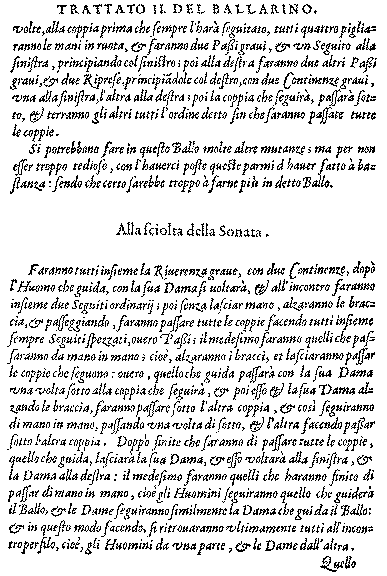 TRATTATO II. DEL BALLARINO.
volte, alla coppia prima che sempre l'harà seguitato, tutti quattro piglia-
ranno le mani in ruota, & faranno due Passi graui, & vn Seguito alla
sinistra, principiando col sinistro; poi alla destra faranno due altri Passi
graui, & due Riprese, principiãdole col destro, con due Continenze graui,
vna alla sinistra, l'altra alla destra: poi la coppia che seguirà, passarà sot-
to, & terranno gli altri tutti l'ordine detto fin che saranno passate tutte
le coppie.
Si potrebbono fare in questo Ballo molte altre mutanze; ma per non
esser troppo tedioso, con l'hauerci poste queste parmi d'hauer fatto à ba-
stanza: sendo che certo sarebbe troppo à farne più in detto Ballo.
Alla sciolta della Sonata.
Faranno tutti insieme la Riuerenza graue, con due Continenze, dopò
l'Huomo che guida, con la sua Dama si uoltarà, & all'incontro faranno
insieme due Seguiti ordinarij; poi senza lasciar mano, alzaranno le brac-
cia, & passeggiando, faranno passare tutte le coppie facendo tutti insieme
sempre Seguiti spezzati, ouero Passi; il medesimo faranno quelli che pas-
saranno da mano in mano; cioè, alzaranno i bracci, et lasciaranno passar
le coppie che seguono: ouero, quello che guida passarà con la sua Dama
una uolta sotto alla coppia che seguirà, & poi esso & la sua Dama al-
zando le braccia, faranno passare sotto l'altra coppia, & così seguiranno
di mano in mano, passando una uolta di sotto, & l'altra facendo passar
sotto l'altra coppia. Doppò finite che saranno di passare tutte le coppie,
quello che guida, lasciarà la sua Dama, & esso voltarà alla sinistra, &
la Dama alla destra: il medesimo faranno quelli che haranno finito di
passar di mano in mano, cioè gli Huomini seguiranno quello che guiderà
il Ballo, & le Dame seguiranno similmente la Dama che guida il Ballo:
& in questo modo facendo, si ritrouaranno vltimamente tutti all'incon-
tro per filo, cioè, gli Huomini da vna parte, & le Dame dall'altra.
Quello